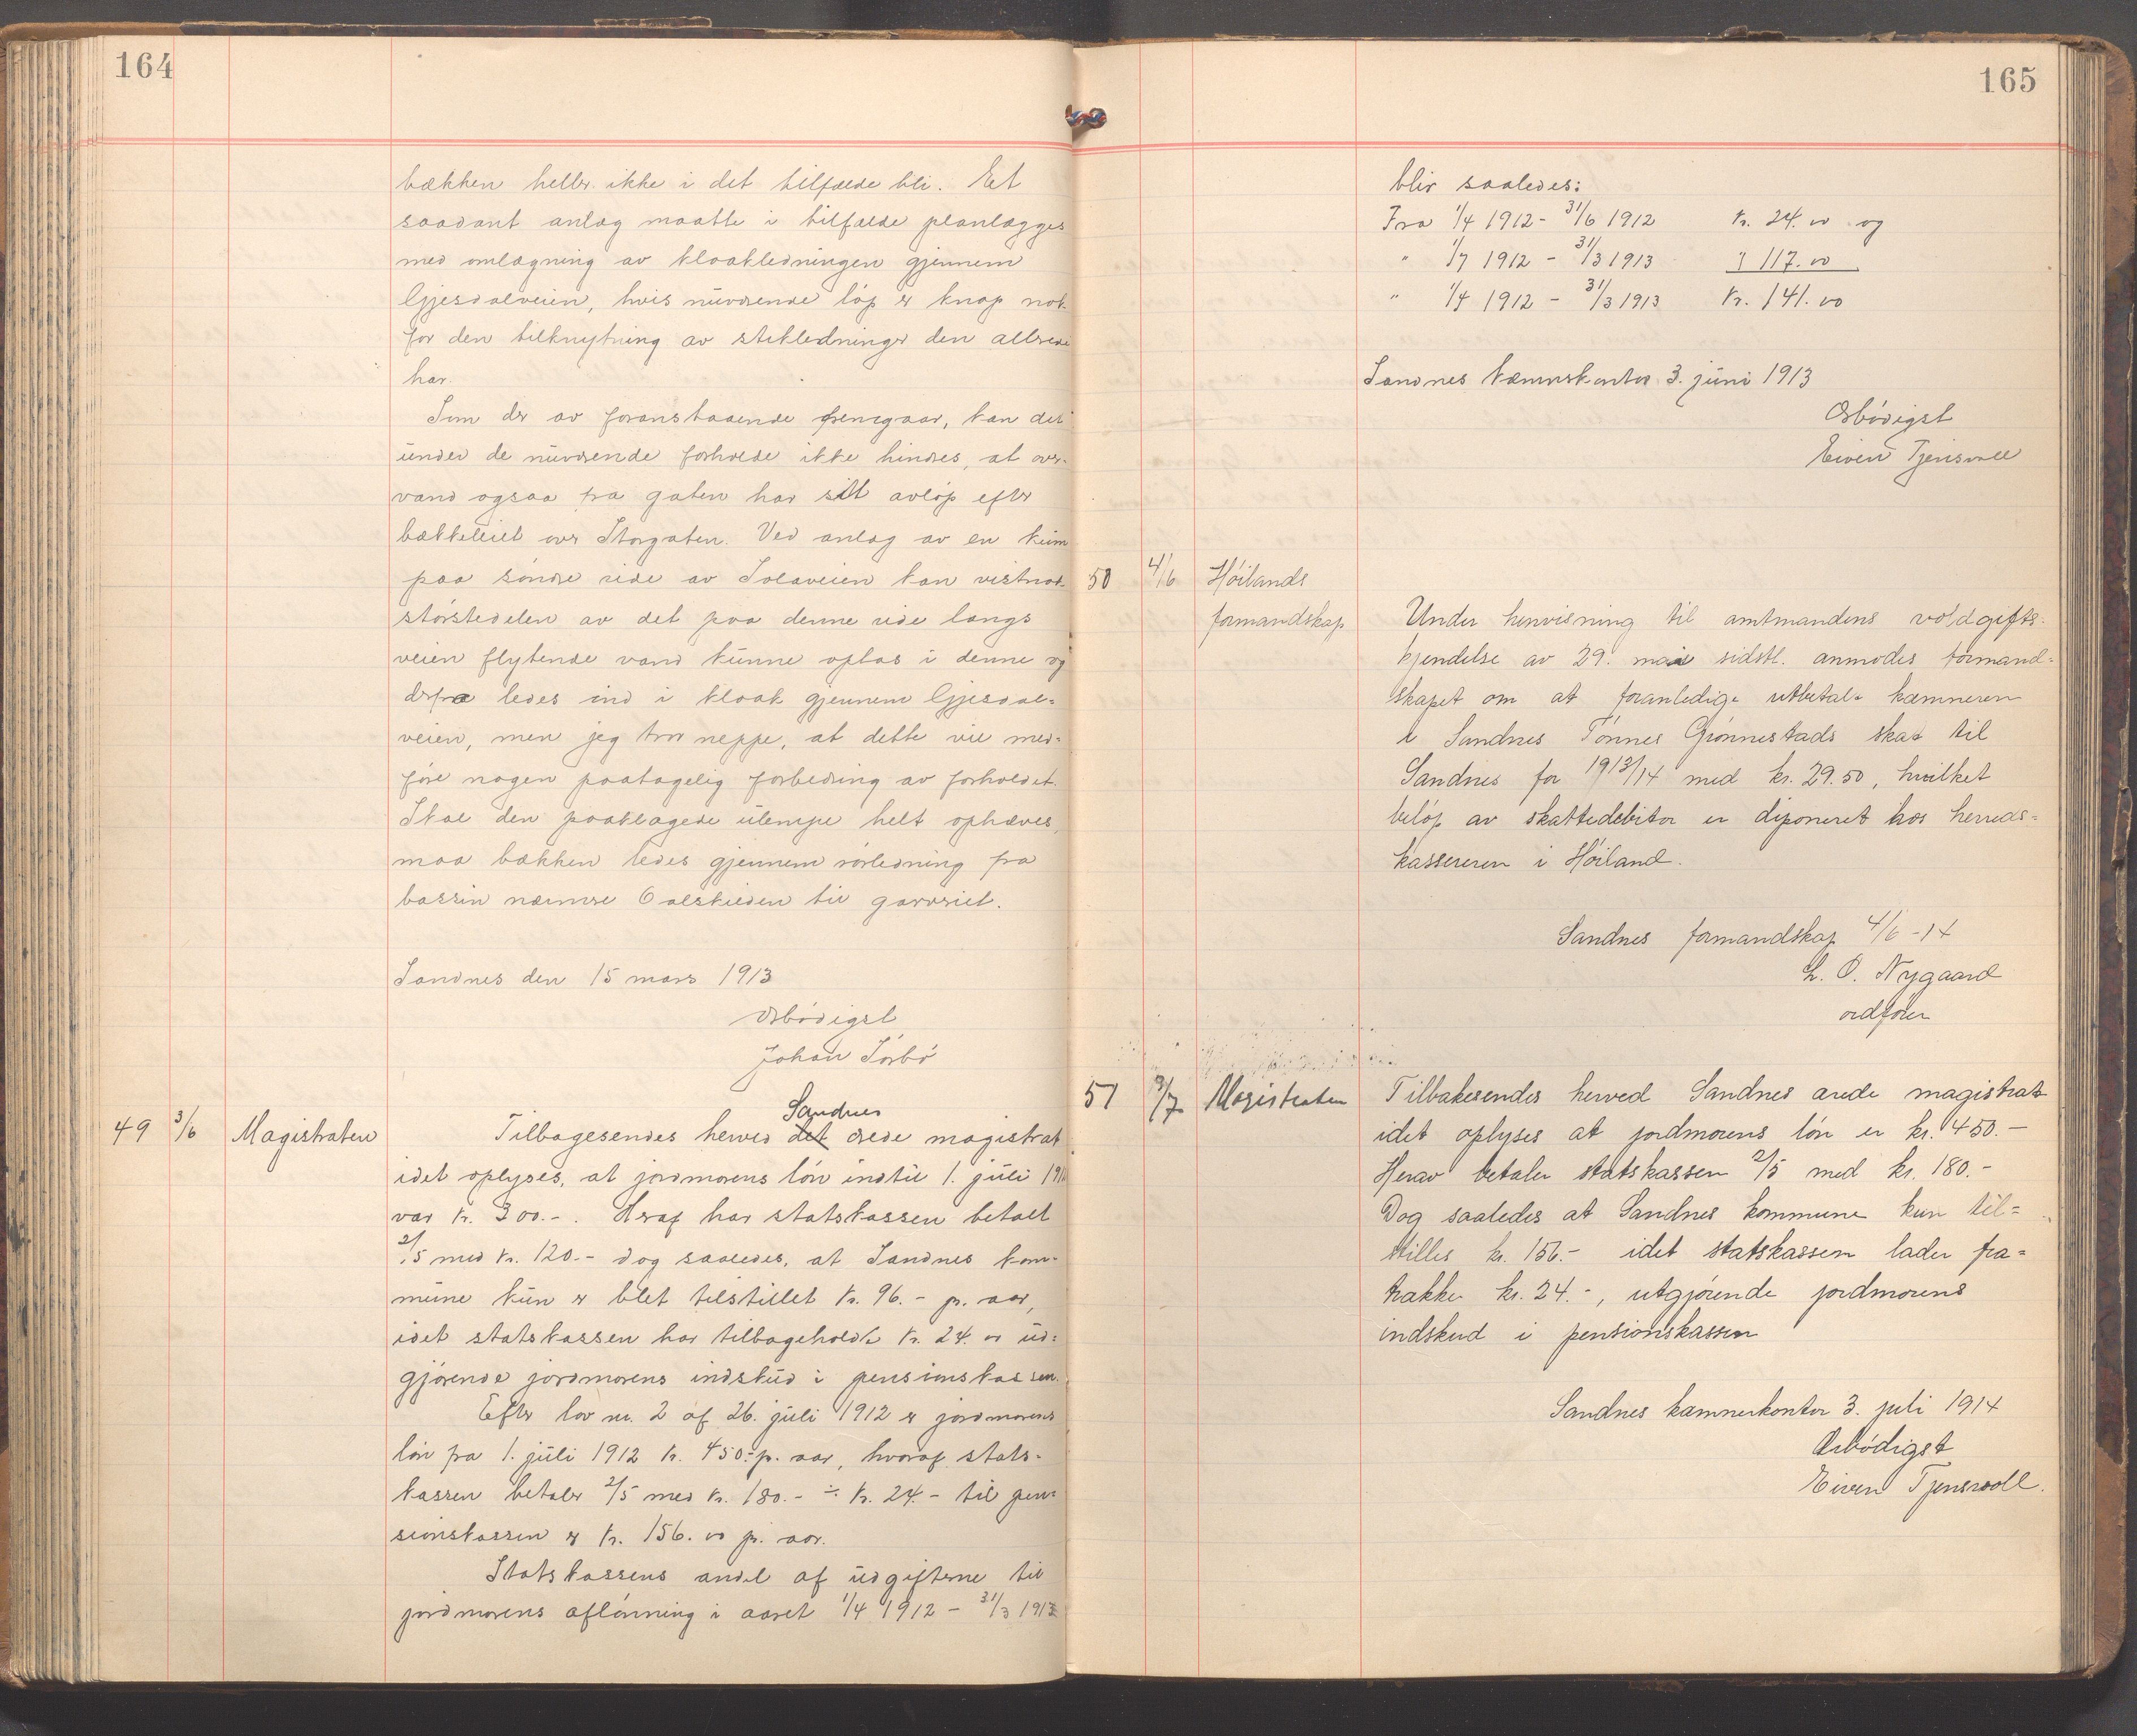 164
bækken heller ikke i det tilfælde bli. Et
saadant anlæg maatte i tilfælde planlægges
med omlægning av kloakledningen gjennem
Gjesdalveien, hvis nuværende løp er knap nok
for den tilknytning av stikledninger den allerede
har.
Som der av foranstaaende fremgaar, kan det
under de nuværende forholde ikke hindres, at over-
vand ogsaa fra gaten har sit avløp efter
bækkeleiet over Storgaten. Ved anlæg av en kum
paa søndre side av Solaveien kan vistnok
størstedelen av det paa denne side langs
veien flytende vand kunne optas i denne og
derfra ledes ind i kloak gjennem Gjesdal=
veien, men jeg tror neppe, at dette vil med=
føre nogen paatagelig forbedring av forholdet.
Skal den paaklagede ulempe helt ophæves,
maa bækken ledes gjennem rørledning fra
bassin nærmere til garveriet.
Sandnes den 15 mars 1913
Ærbødigst
Johan Sørbø
49 3/6 Magistraten
Sandnes
Tilbagesendes herved det ærede magistrat
idet oplyses, at jordmorens løn indtil 1. juli
var kr. 300.-. Heraf har statskassen betalt
2/5 med kr. 120.- dog saaledes, at Sandnes kom-
mune kun er blet tilstillet kr. 96.- p. aar,
idet statskassen har tilbageholdt kr. 24.00 ud=
gjørende jordmorens indskud i pensionskassen.
Efter lov nr. 2 af 26. juli 1912 er jordmorens
løn fra 1. juli 1912 kr. 450.- p. aar, hvoraf stats-
kassen betaler 2/5 med kr. 180.- ÷ kr. 24.- til pen=
sionskassen er kr. 156.00 p. aar.
Statskassens andel af udgifterne til
jordmorens aflønning i aaret 1/4 1912 - 31/3 1913
165
blir saaledes:
Fra 1/4 1912 - 31/6 1912 kr. 24.00 og
" 1/7 1912 - 31/3 1913 " 117.00
" 1/4 1912 - 31/3 1913 kr. 141.00
Sandnes kæmnerkontor 3. juni 1913
Ærbødigst
Eiven Tjensvoll
50 4/6 Høilands
formandskap
Under henvisning til amtmandens voldgifts-
kjendelse av 29. mai sidstl. anmodes formand=
skapet om at foranledige utbetalt kæmneren
i Sandnes Tønnes Grønnestads skat til
Sandnes for 1913/14 med kr. 29.50, hvilket
beløp av skattedebitor er diponeret hos herreds=
kassereren i Høiland.
Sandnes formandskap 4/6 - 14
L. O. Nygaard
ordfører
51 3/7 Magistraten
Tilbakesendes herved Sandnes ærede magistrat
idet oplyses at jordmorens løn er kr. 450.-
Herav betaler statskassen 2/5 med kr. 180.-
Dog saaledes at Sandnes kommune kun til=
stilles kr. 156.- idet statskassen lader fra=
trække kr. 24.-, utgjørende jordmorens
indskud i pensionskassen
Sandnes kæmnerkontor 3. juli 1914
Ærbødigst
Eiven Tjensvoll.